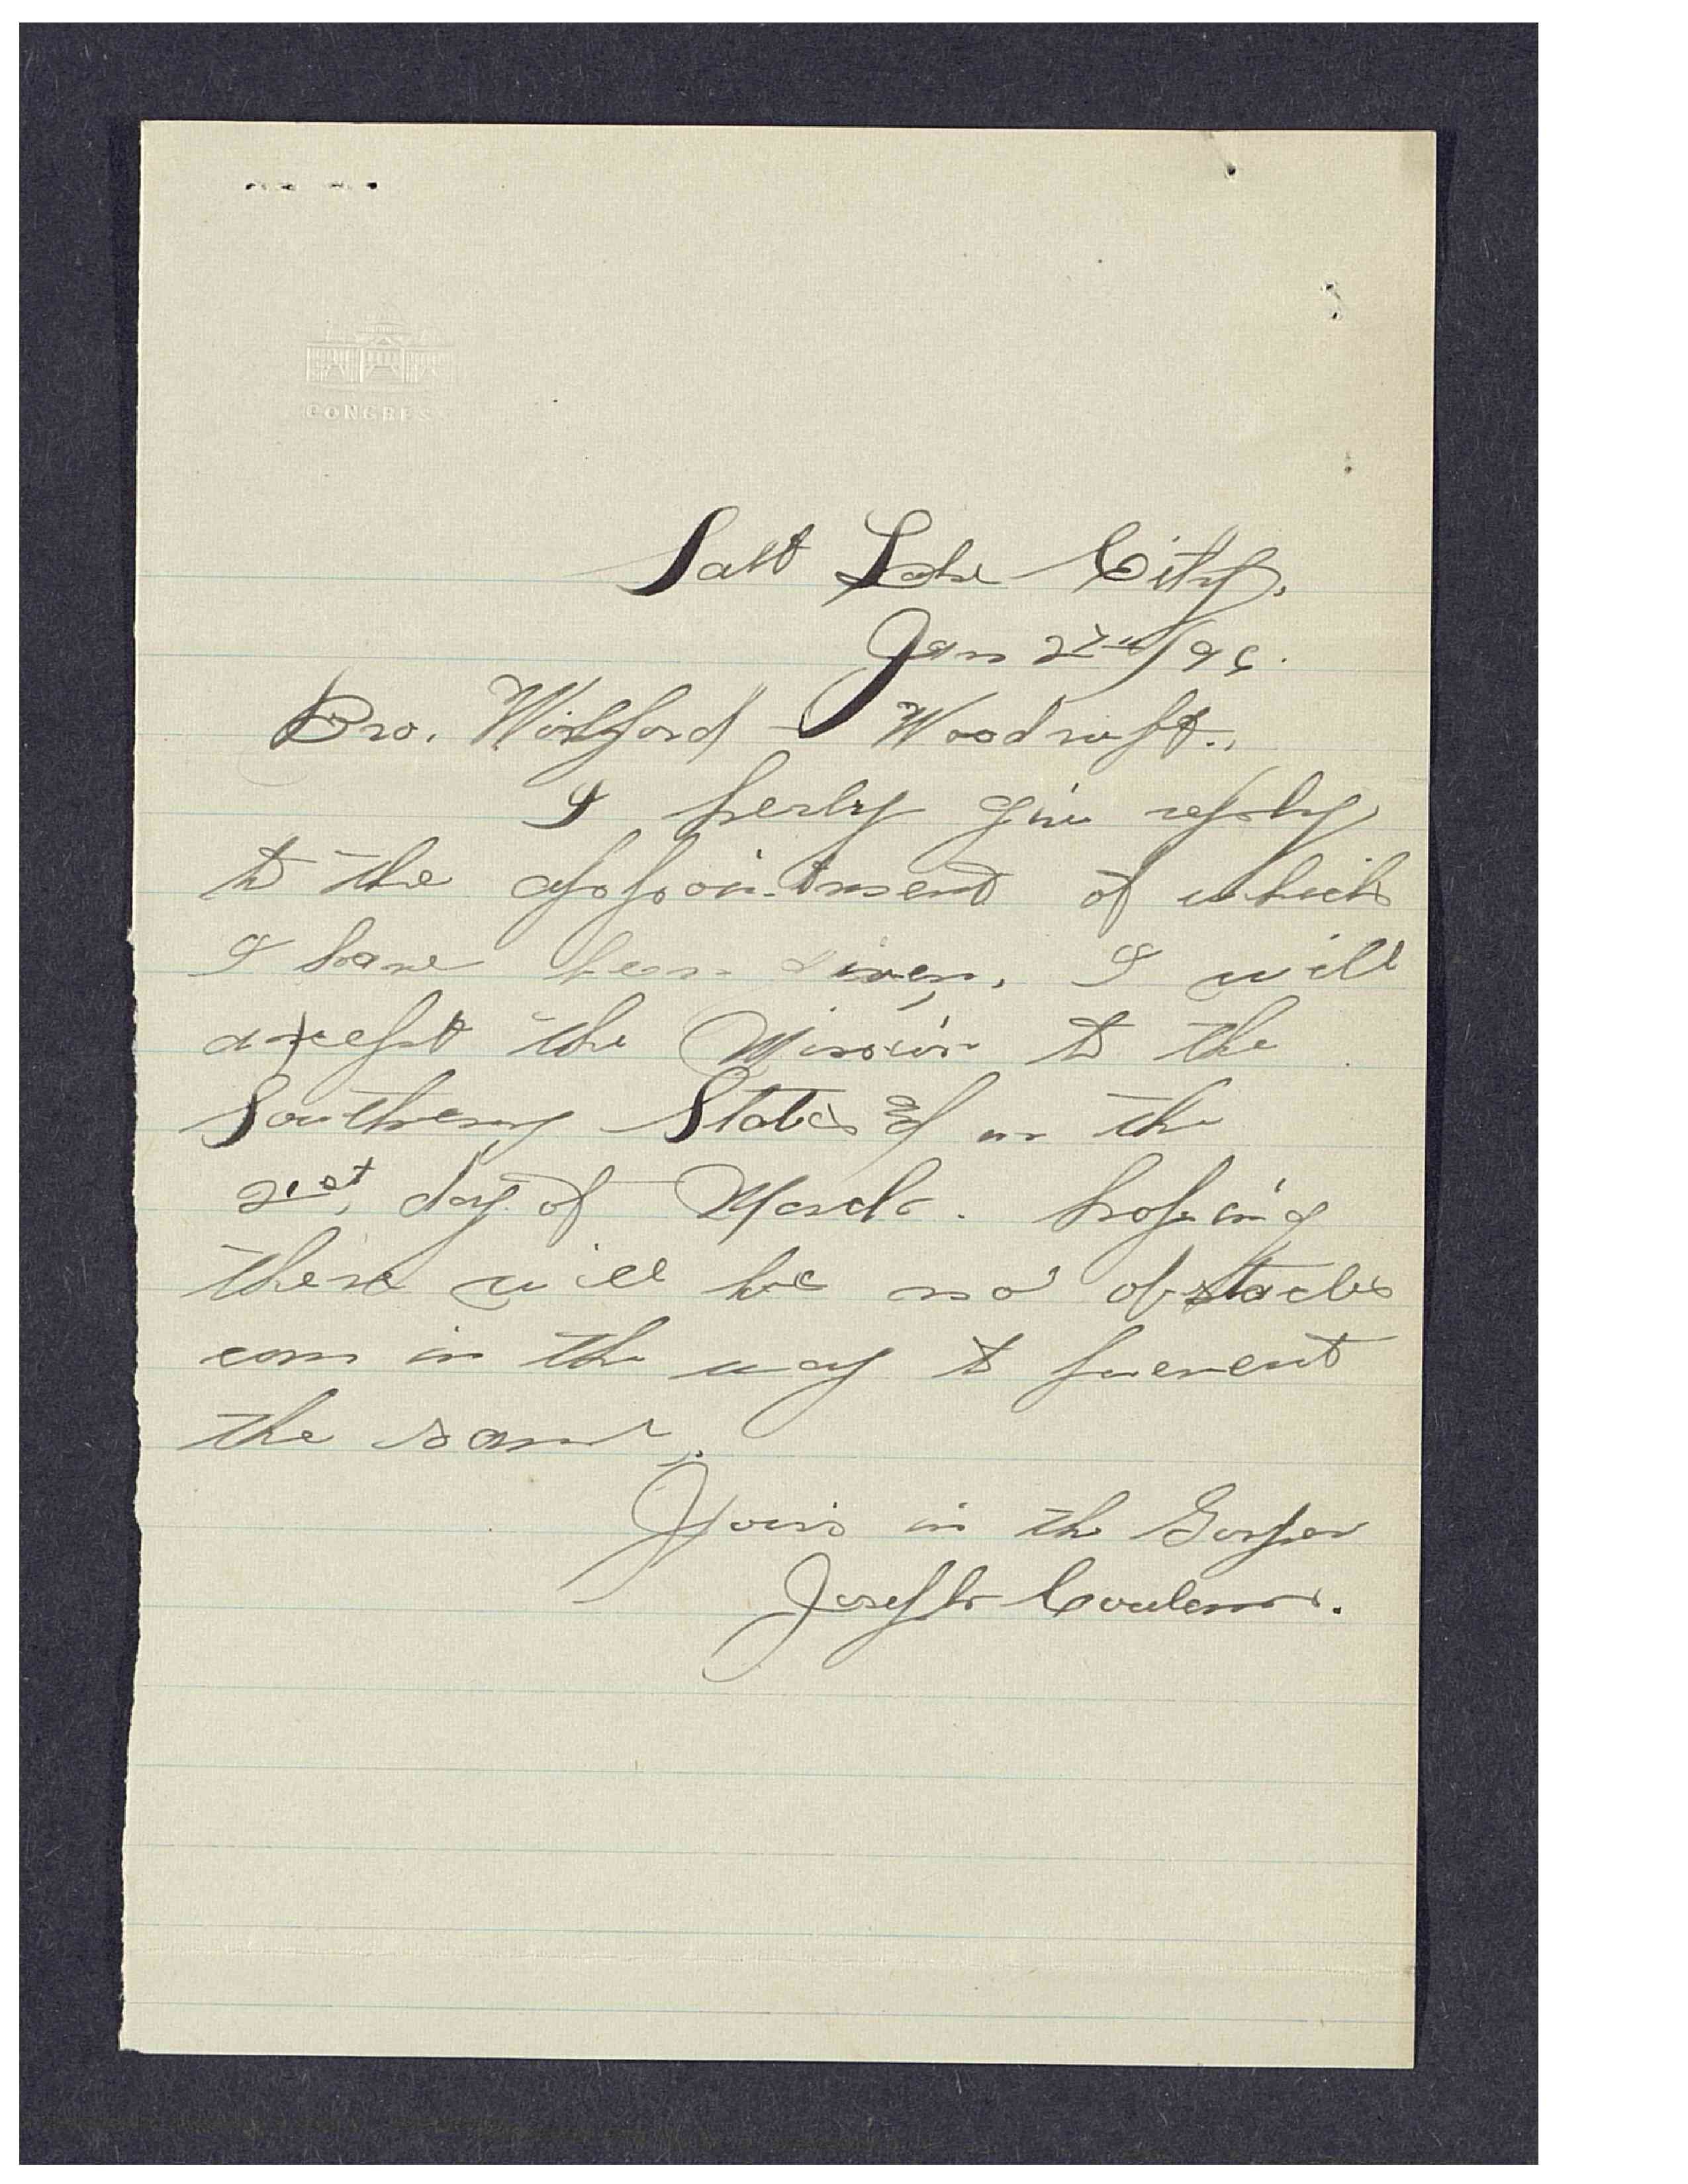 CONGRESS
Salt Lake City,
Jan 27th/96.
Bro. Wilford Woodruff.,
I herby give reply
to the appointment of which
I have been given, I will
accept the Mission to the
Southern States on the
21st, day of March. hoping
there will be no obstacles
com in the way to prevent
the same.
Yours in the Gospel
Joseph